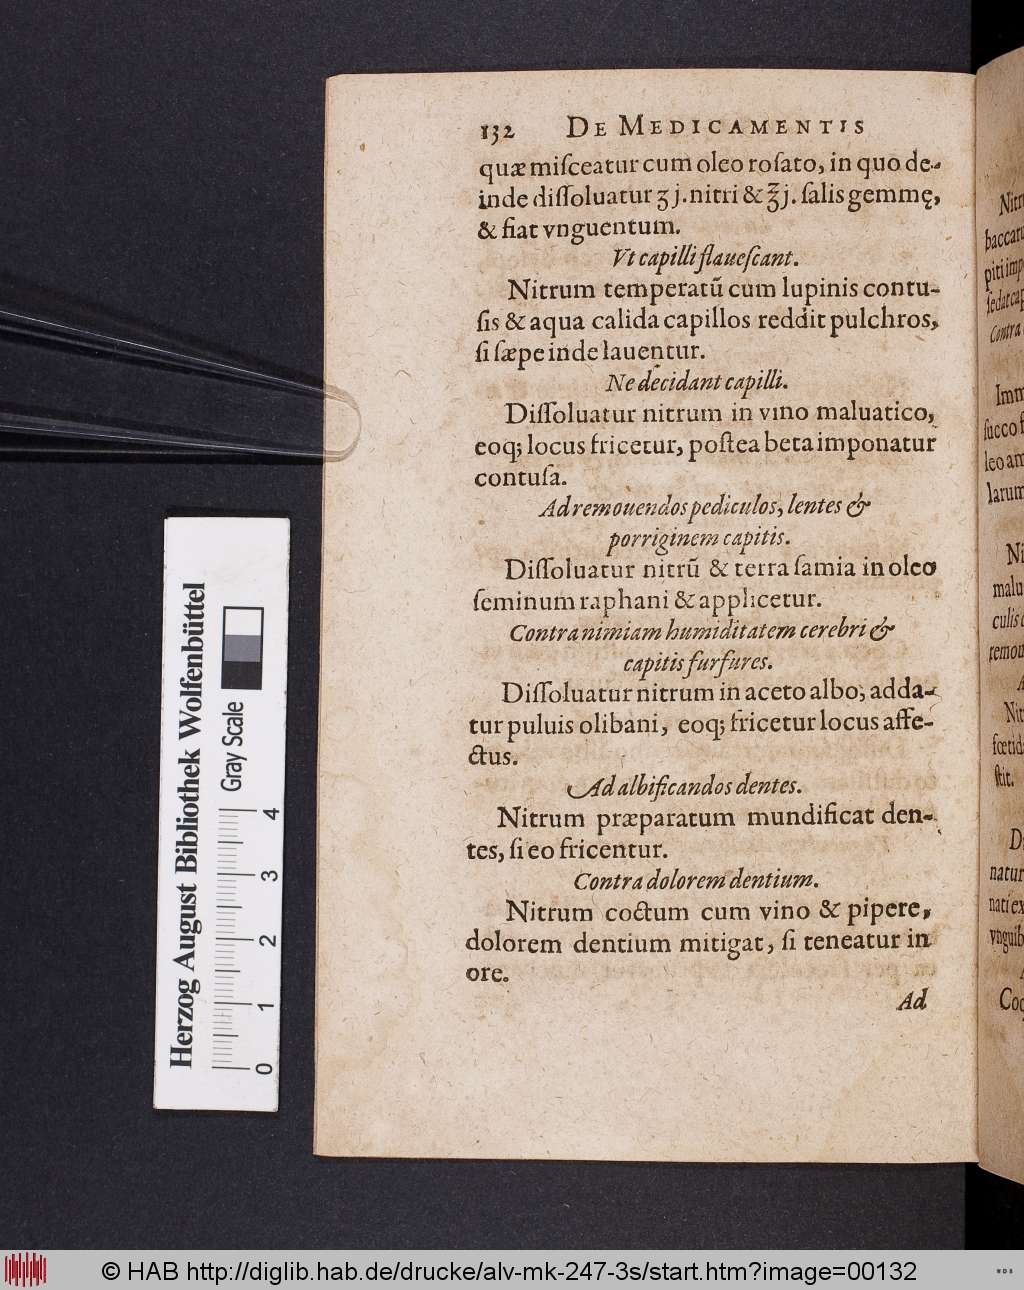 132 DE MEDICAMENTIS
quæ miſceatur cum oleo roſato, in quo de-
inde diſſoluatur ʒ j. nitri & ℥ j. ſalis gemmę,
& fiat vnguentum.
Vt capilli flaueſcant.
Nitrum temperatũ cum lupinis contu-
ſis & aqua calida capillos reddit pulchros,
ſi ſæpe inde lauentur.
Ne decidant capilli.
Diſſoluatur nitrum in vino maluatico,
eoq; locus fricetur, poſtea beta imponatur
contuſa.
Ad remouendos pediculos, lentes &
porriginem capitis.
Diſſoluatur nitrũ & terra ſamia in oleo
ſeminum raphani & applicetur.
Contra nimiam humiditatem cerebri &
capitis furfures.
Diſſoluatur nitrum in aceto albo, adda-
tur puluis olibani, eoq; fricetur locus affe-
ctus.
Ad albificandos dentes.
Nitrum præparatum mundificat den-
tes, ſi eo fricentur.
Contra dolorem dentium.
Nitrum coctum cum vino & pipere,
dolorem dentium mitigat, ſi teneatur in
ore.
Ad
Nitr
baccatu
piti imp
ſedat cap
Contra
Imm
ſucco
leo am
larum
Ni
malu
culis
remou
A
Nit
fœtid
ſtit.
D
natur
nati ex
vnguib
Coq
Herzog August Bibliothek Wolfenbüttel
Gray Scale
0 1 2 3 4
© HAB http://diglib.hab.de/drucke/alv-mk-247-3s/start.htm?image=00132